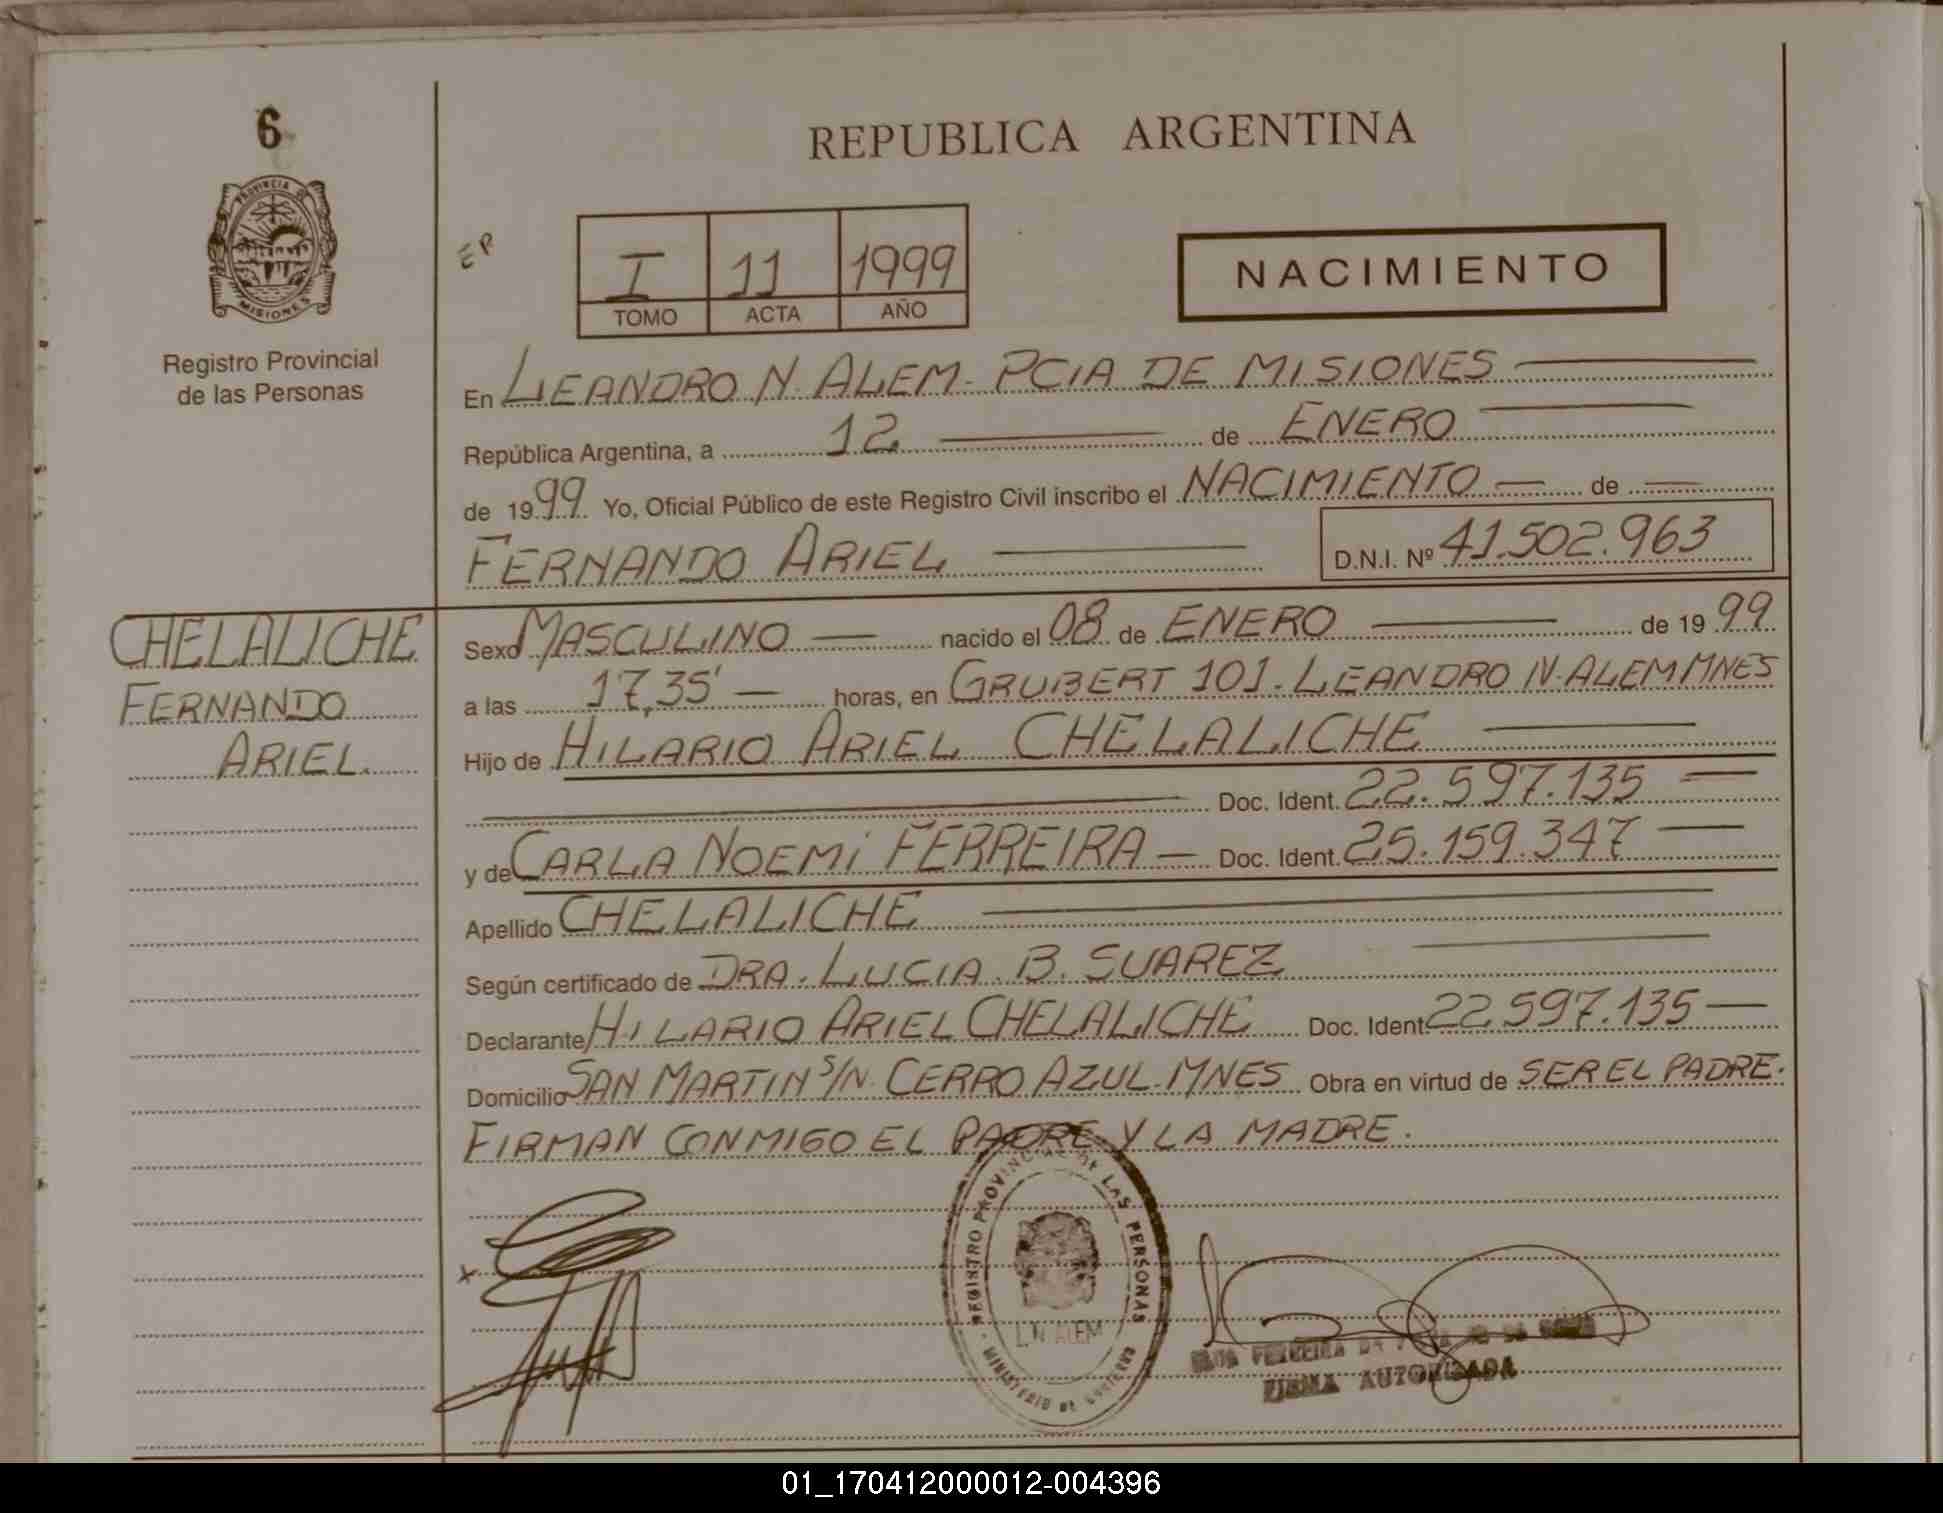 6
PROVINCIA DE
MISIONES
Registro Provincial
de las Personas
REPUBLICA ARGENTINA
EP
I 11 1999
TOMO ACTA AÑO
NACIMIENTO
En LEANDRO N. ALEM. PCIA DE MISIONES
República Argentina, a 12 de ENERO
de 1999 Yo, Oficial Público de este Registro Civil inscribo el NACIMIENTO — de —
FERNANDO ARIEL D.N.I. Nº 41.502.963
CHELALICHE
FERNANDO
ARIEL.
Sexo MASCULINO — nacido el 08 de ENERO de 1999
a las 17,35' — horas, en GRUBERT 101. LEANDRO N. ALEM MNES
Hijo de HILARIO ARIEL CHELALICHE
Doc. Ident. 22.597.135 —
y de CARLA NOEMi FERREIRA — Doc. Ident. 25.159.347 —
Apellido CHELALICHE
Según certificado de DRA. LUCIA B. SUAREZ
Declarante HILARIO ARIEL CHELALICHE Doc. Ident. 22.597.135 —
Domicilio SAN MARTIN S/N. CERRO AZUL. MNES Obra en virtud de SER EL PADRE.
FIRMAN CONMIGO EL PADRE Y LA MADRE.
REGISTRO PROVINCIAL DE LAS PERSONAS
L.N. ALEM
MINISTERIO DE GOBIERNO
x
FERREIRA
FIRMA AUTORIZADA
01_170412000012-004396